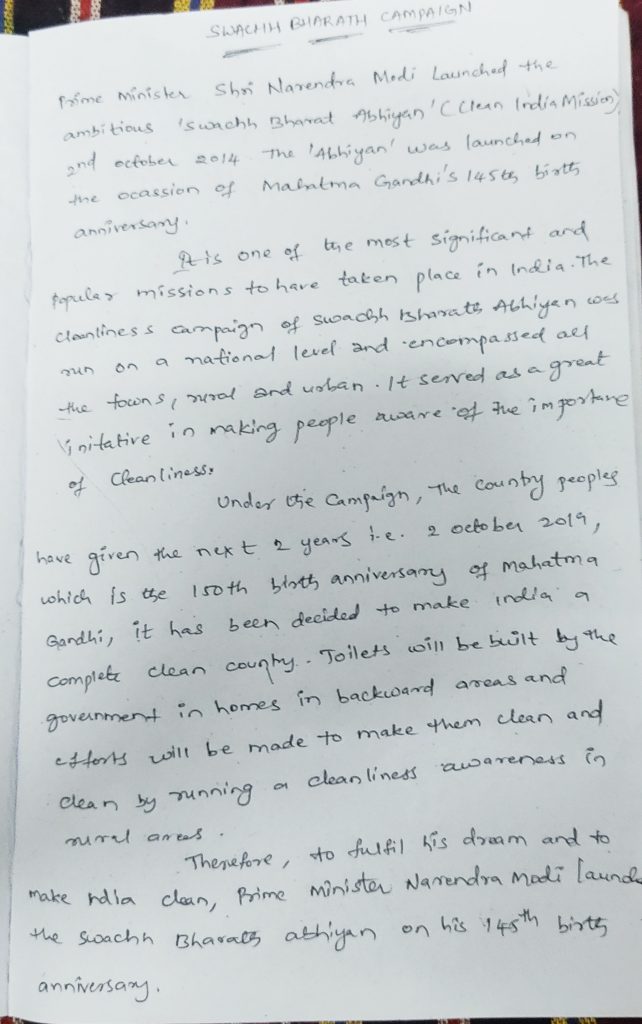 SWACHH BHARATH CAMPAIGN
Prime Minister Shri Narendra Modi Launched the
ambitious 'Swachh Bharat Abhiyan' (Clean India Mission)
2nd october 2014. The 'Abhiyan' was launched on
the ocassion of Mahatma Gandhi's 145th birth
anniversary.
It is one of the most significant and
popular missions to have taken place in India. The
cleanliness campaign of Swachh Bharath Abhiyan was
run on a national level and encompassed all
the towns, rural and urban. It served as a great
initative in making people aware of the importane
of Cleanliness.
Under the Campaign, The country peoples
have given the next 2 years i.e. 2 october 2019,
which is the 150th birth anniversary of Mahatma
Gandhi, it has been decided to make india a
complete clean country. Toilets will be built by the
government in homes in backward areas and
efforts will be made to make them clean and
clean by running a cleanliness awareness in
rural areas.
Therefore, to fulfil his dream and to
make ndia clean, Prime Minister Narendra Modi launch
the Swachh Bharath abhiyan on his 145th birth
anniversary.